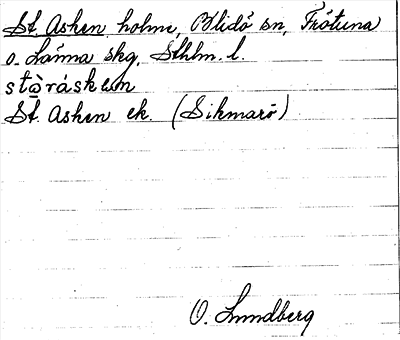 St. Asken holme, Blidö sn, Frötuna
o. Länna skg, Sthlm. l.
St. Asken ek. (Sikmarö)
O. Lundberg